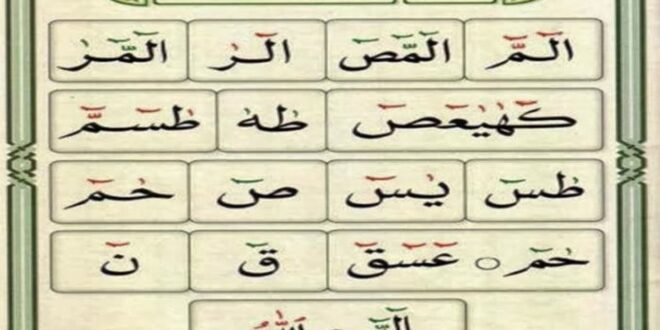 الٓمّٓ الٓمّٓصٓ الٓرٰ الٓمّٓرٰ
كٓهٰيٰعٓصٓ طٰهٰ طٰسٓمّٓ
طٰسٓ يٰسٓ صٓ حٰمٓ
حٰمٓ ۝ عٓسٓقٓ قٓ نٓ